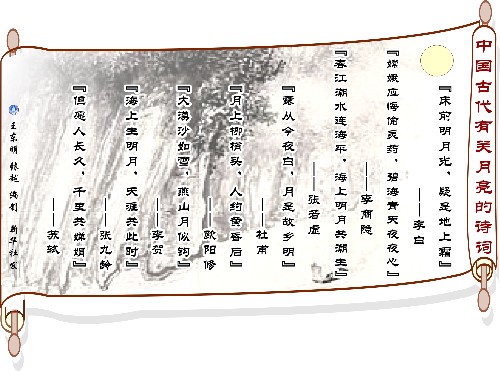 中国古代有关月亮的诗词
『床前明月光，疑是地上霜』
——李白
『嫦娥应悔偷灵药，碧海青天夜夜心』
——李商隐
『春江潮水连海平，海上明月共潮生』
——张若虚
『露从今夜白，月是故乡明』
——杜甫
『月上柳梢头，人约黄昏后』
——欧阳修
『大漠沙如雪，燕山月似钩』
——李贺
『海上生明月，天涯共此时』
——张九龄
『但愿人长久，千里共婵娟』
——苏轼
王东明 编制 新华社发